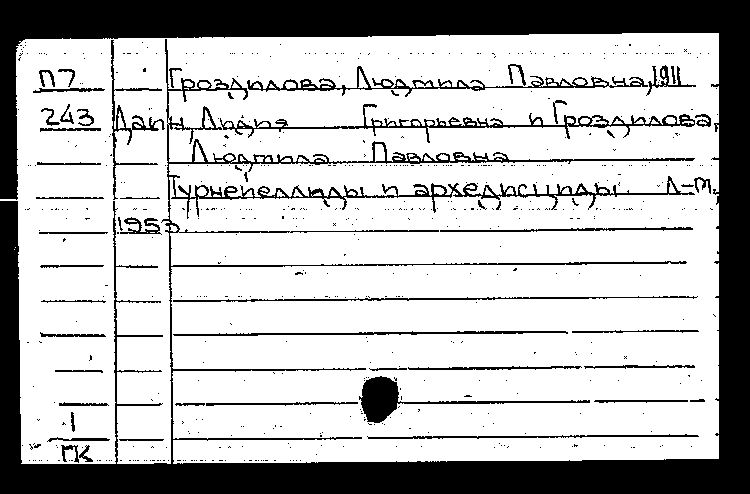 П7 Гроздилова, Людмила Павловна, 1911
243 Даин, Лидия Григорьевна и Гроздилова,
Людмила Павловна
Турнейеллиды и археодисциды. Л-М,
1953.
1
ГК